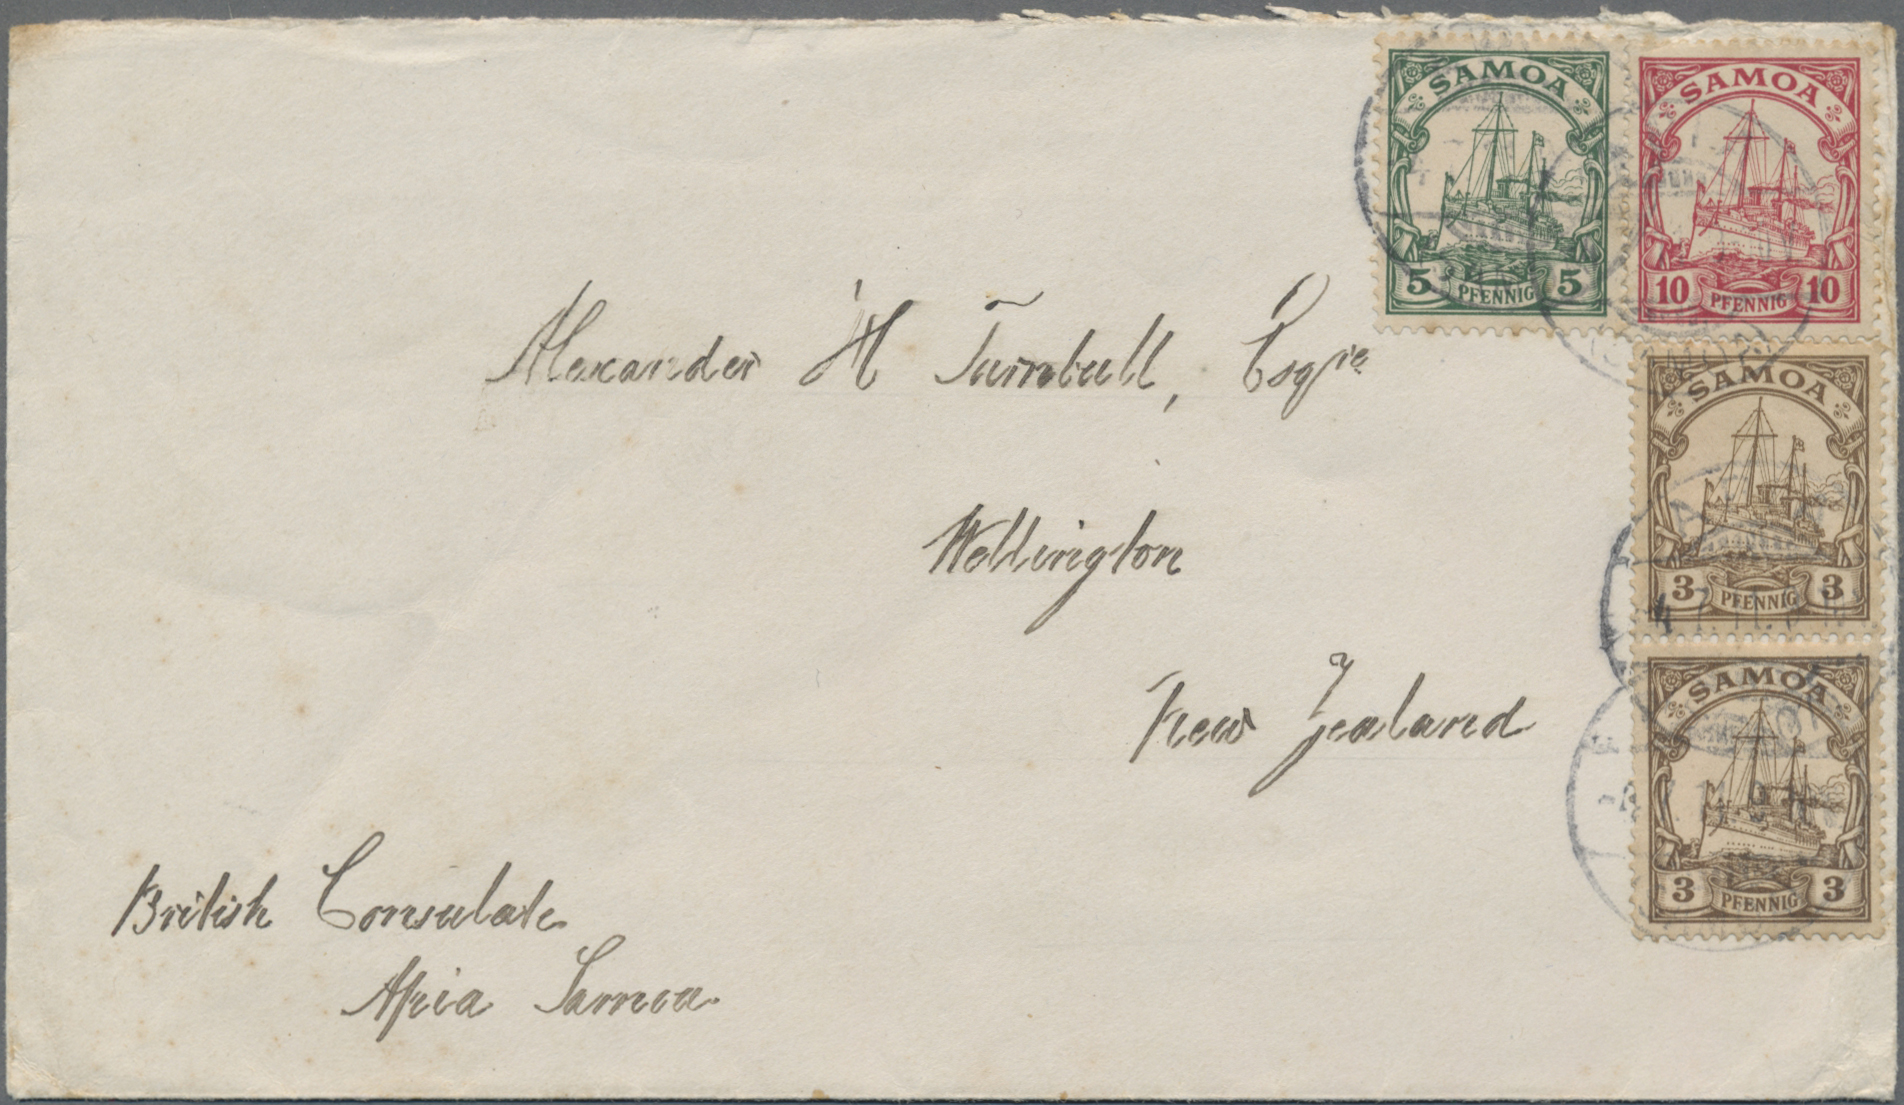 SAMOA
5 PFENNIG 5
SAMOA
10 PFENNIG 10
SAMOA
3 PFENNIG 3
SAMOA
3 PFENNIG 3
Alexander H Turnbull, Esqre
Wellington
New Zealand
British Consulate
Apia Samoa